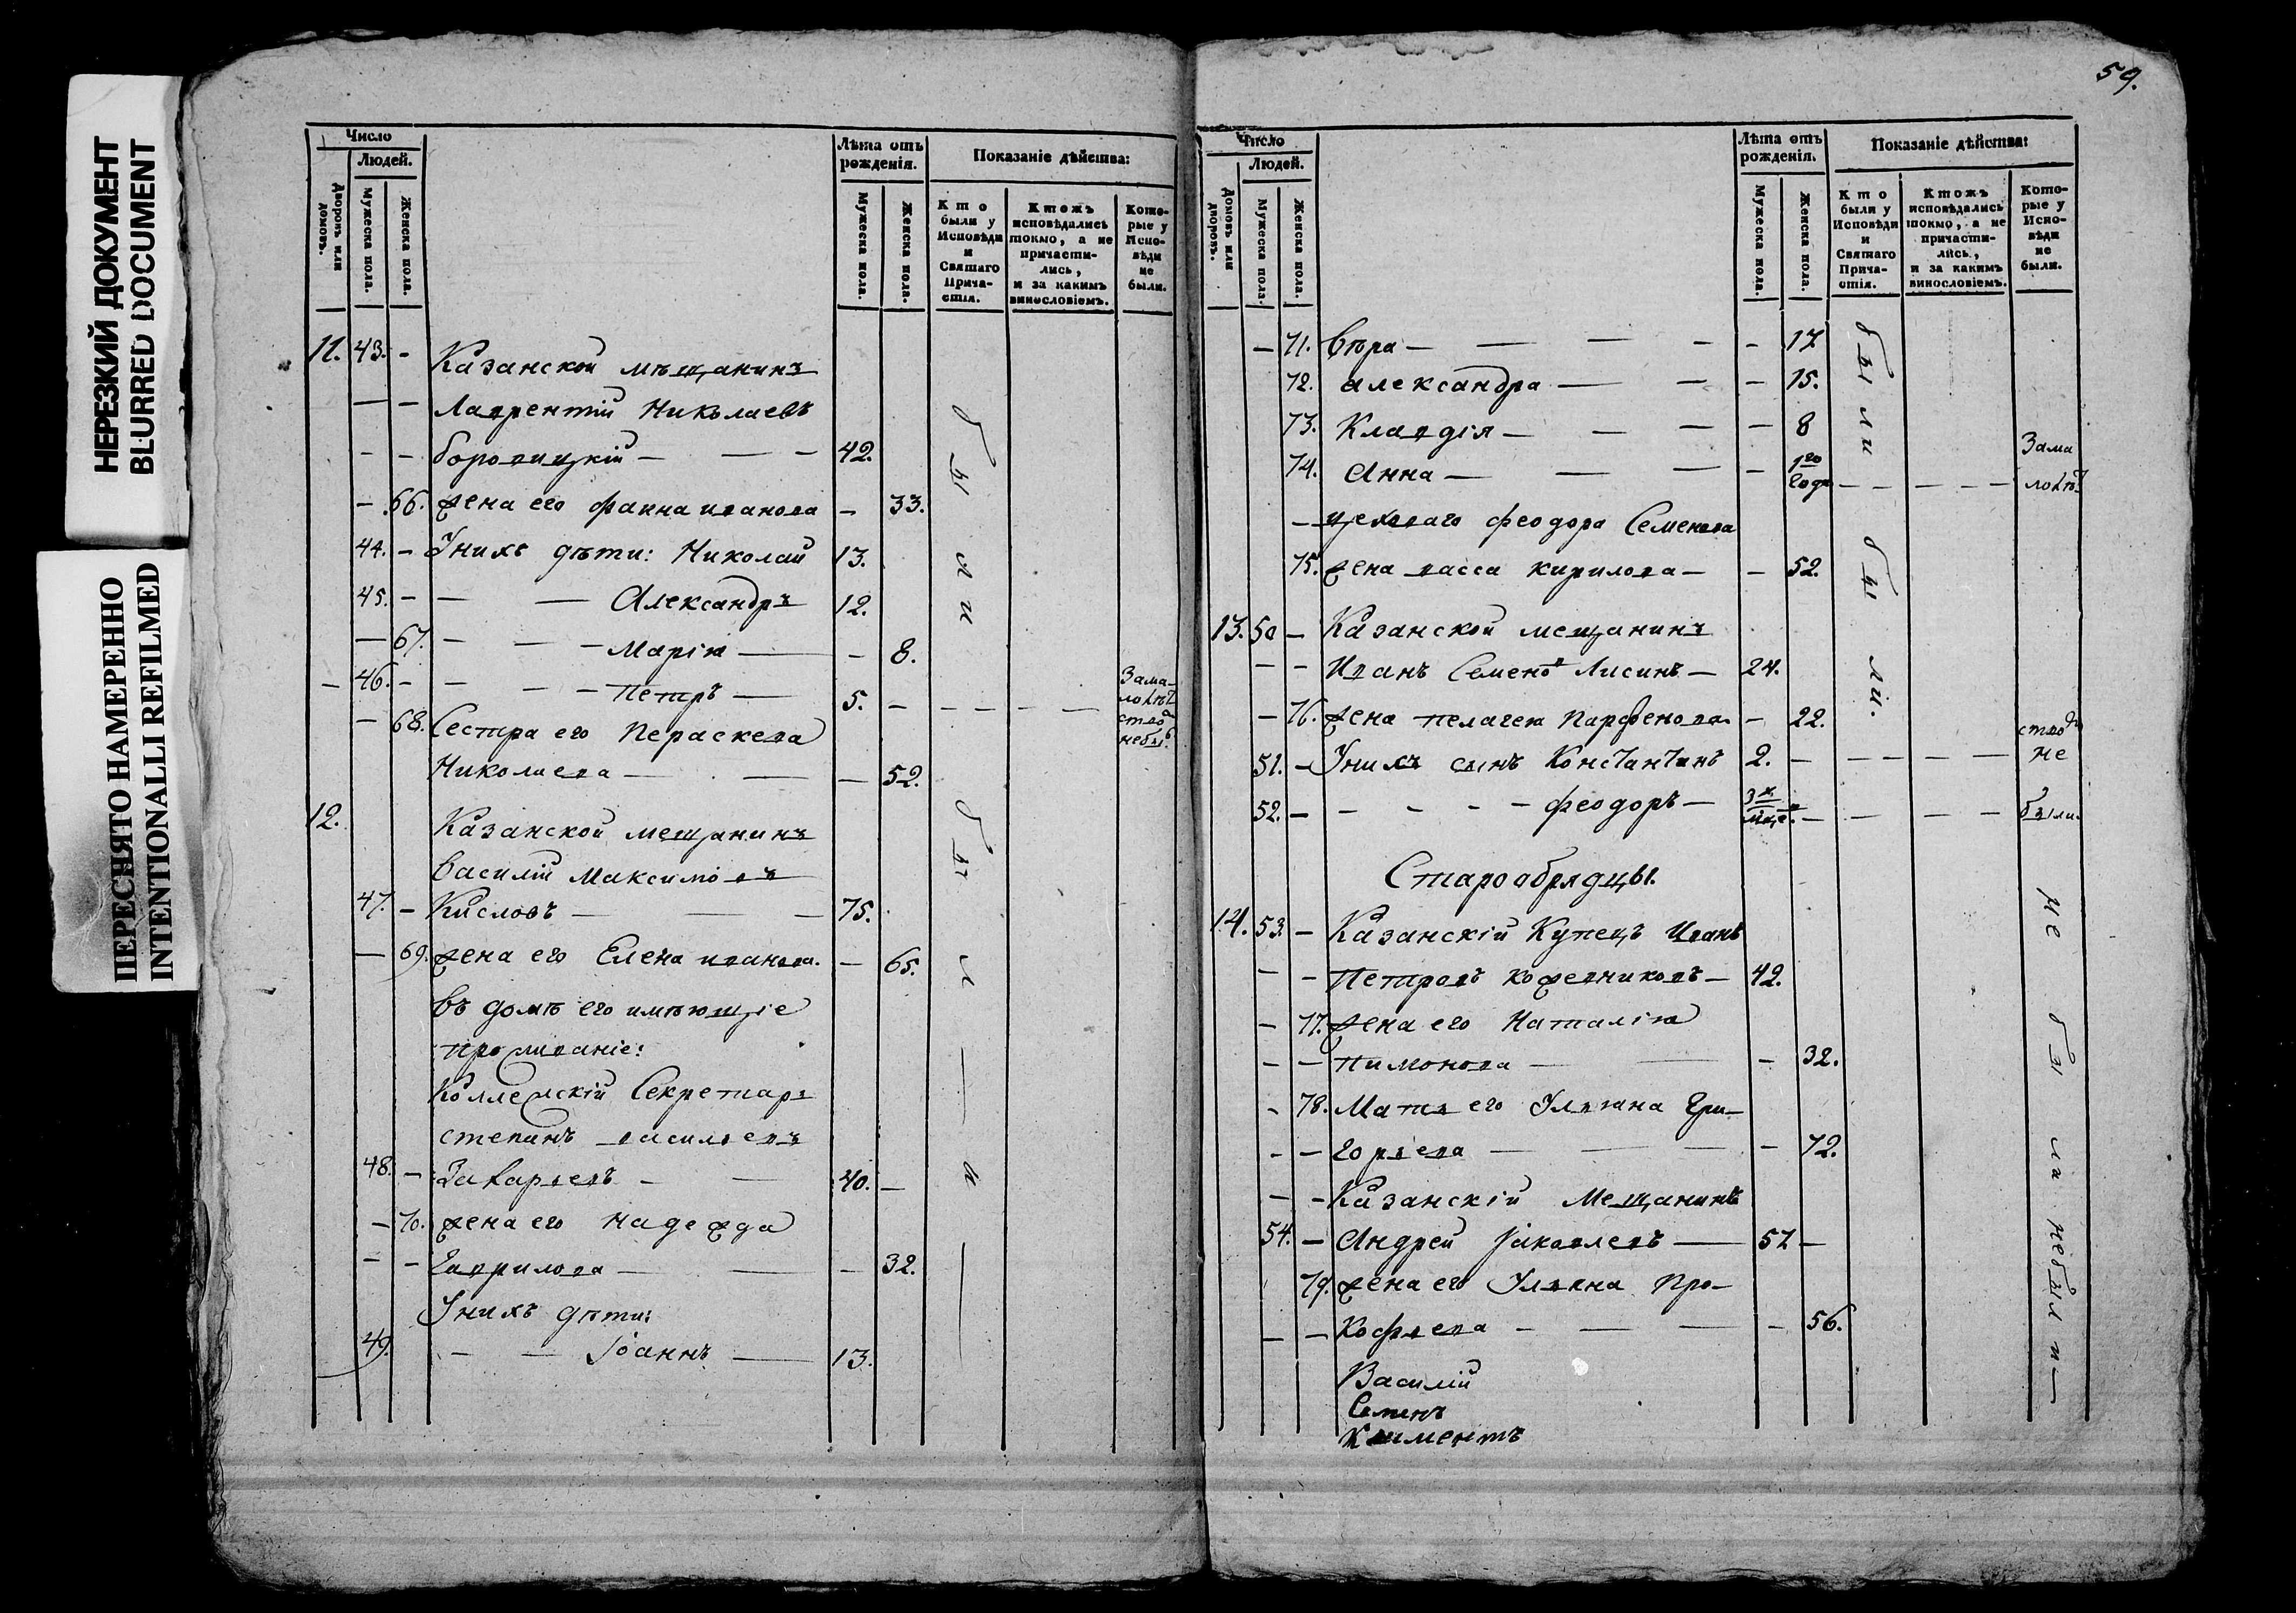 НЕРЕЗКИЙ ДОКУМЕНТ
BLURRED DOCUMENT
ПЕРЕСНЯТО НАМЕРЕННО
INTENTIONALLI REFILMED
Число
Людей.
Дворовъ или домовъ.
Мужеска пола.
Женска пола.
Лѣта отъ рожденія.
Мужеска пола.
Женска пола.
Показаніе дѣйства:
Кто были у Исповѣди и Святаго Прича-стія.
Ктожъ исповѣдались токмо, а не причасти-лись, и за какимъ винословіемъ.
Кото-рые у Испо-вѣди не были.
11. 43. - Казанской мѣщанинъ
— — Лаврентій Николаевъ
- - Боровицкій — — - 42.
- 66. жена его Фаина иванова - 33.
44. - Уних дѣти: Николай 13.
45. - — — Александръ 12.
— 67. - — — Марія — - 8.
- 46. - - — — Петръ — 5. - - - - - Зама-лолѣтством небы:
— 68. Сестра его Пераскева
Николаева — — — 52.
были
12. Казанской мещанинъ
Василій Максимовъ
47. - Кисловъ — — - 75.
— 69. жена его Елена иванова. - 65.
въ домѣ его имѣющіе
проживаніе:
Коллежскій Секретарь
степанъ васильевъ
48. - Захарьевъ - — 40. -
- 70. жена его надежда
- - Гаврилова — — - 32.
Уних дѣти:
49. - — Іоаннъ — 13.
были
59.
Число
Людей.
Домовъ или дворовъ.
Мужеска пола.
Женска пола.
Лѣта отъ рожденія.
Мужеска пола.
Женска пола.
Показаніе дѣйства:
Кто были у Исповѣди и Святаго Прича-стія.
Ктожъ исповѣдались токмо, а не причасти-лись, и за какимъ винословіемъ.
Кото-рые у Испо-вѣди не были.
— 71. Вѣра — — — - - 17
72. александра — — - 15.
73. Клавдія — — — - 8
74. Анна — — — - 1го года - - - - - Зама лолѣт
были
— цеховаго Феодора Семенова
75. жена васса кирилова — - 52.
13. 50 - Казанской мещанинъ
- - Иванъ Семеновъ Лисинъ — 24.
- 76. жена пелагея Парфенова - 22.
были.
51. - Уних сынъ Константинъ 2. - - - - - ством не
52. - - - - - феодоръ — 3х мце. - - - - были.
Старообрядцы.
14. 53. - Казанскій Купецъ Иванъ
- - Петровъ кожевниковъ — 42.
- 77. жена его Наталія
- - Пимонова — — - 32.
- 78. Мать его Ульяна Гри—
- - горьева — — — - 72.
- - Казанскій Мещанинъ
54. - Андрей Іаковлевъ — 57 —
79. жена его Ульяна Про—
- - кофьева - — — - 56.
Василій
Семенъ
Климентъ